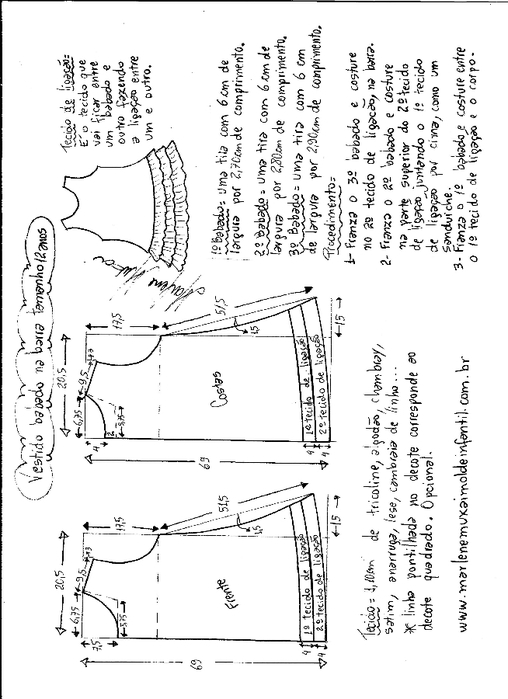 Vestido babados na barra tamanho 12 anos
Tecido de ligação=
É o tecido que
vai ficar entre
um babado e
outro fazendo
a ligação entre
um e outro.
1º Babado= uma tira com 6 cm de
largura por 2,70cm de comprimento.
2º Babado= uma tira com 6 cm de
largura por 2,80cm de comprimento.
3º Babado= uma tira com 6 cm
de largura por 2,90cm de comprimento.
Procedimento=
1- Franza o 3º babado e costure
no 2º tecido de ligação, na barra.
2- Franza o 2º babado e costure
na parte superior do 2º tecido
de ligação juntando o 1º tecido
de ligação por cima, como um
sanduiche.
3- Franza o 1º babado e costure entre
o 1º tecido de ligação e o corpo.
20,5
6,75
9,5
3
17,5
7,5
5,75
51,5
1,5
69
Frente
1º tecido de ligação
2º tecido de ligação
4
4
15
20,5
6,75
9,5
3
17,5
4
2
5,75
51,5
1,5
69
Costas
1º tecido de ligação
2º tecido de ligação
4
4
15
Tecido= 1,10cm de tricoline, algodão, chambray,
satim, anarruga, lese, cambraia de linho...
* linha pontilhada no decote corresponde ao
decote quadrado. Opcional.
www.marlenemukaimoldeinfantil.com.br